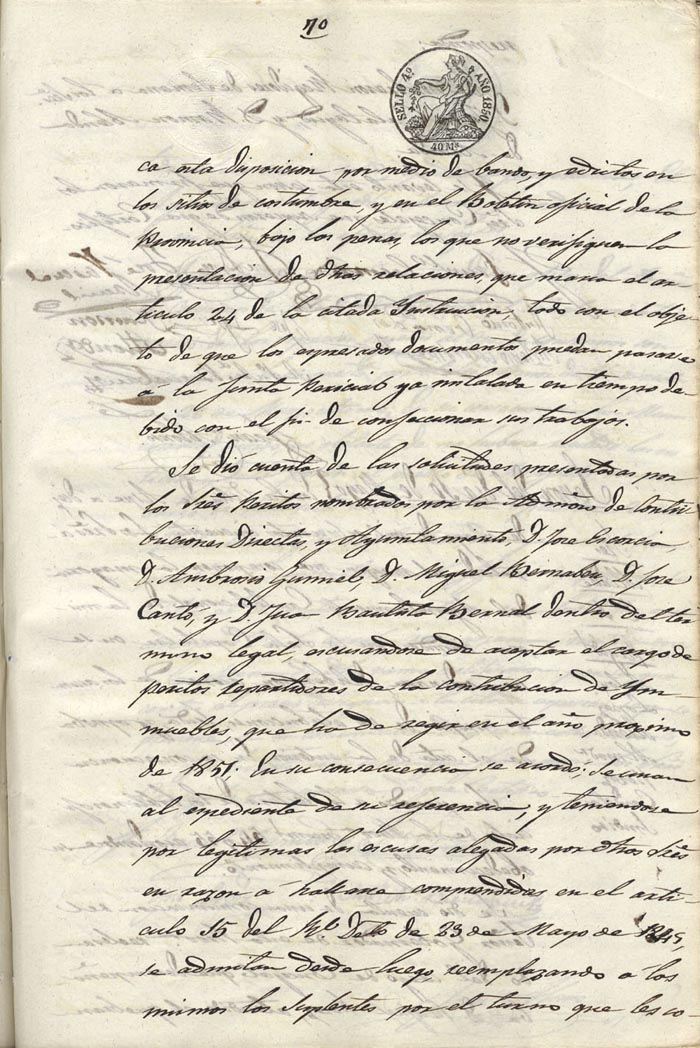 70
SELLO 4º AÑO 1850.
40 Ms
ca esta disposicion por medio de bandos y edictos en
los sitios de costumbre, y en el Boletin oficial de la
Provincia, bajo las penas, los que no verifiquen la
presentacion de dhas relaciones, que marca el ar-
ticulo 24 de la citada Instruccion, todo con el obje-
to de que los espresados documentos puedan pasarse
á la Junta Pericial ya instalada en tiempo de-
bido con el fin de confeccionar sus trabajos.
Se dió cuenta de las solicitudes presentadas por
los Sres Peritos nombrados por la Admon de Contri-
buciones Directas, y Ayuntamiento, D. Jose Escorcia,
D. Ambrosio Gumiel, D. Miguel Bernabeu, D. Jose
Cantó, y D. Jua Bautista Bernal dentro del ter-
mino legal, escusandose de aceptar el cargo de
peritos repartidores de la contribucion de Ynn-
muebles, que ha de regir en el año proximo
de 1851. En su consecuencia se acordó: Se unan
al espediente de su referencia, y teniendose
por legitimas las escusas alegadas por dhos Sres
en razon á hallarse comprendidas en el arti-
culo 15 del Rl. Deto de 23 de Mayo de 1845,
se admitan desde luego, reemplazando á los
mismos los Suplentes por el turno que les co-